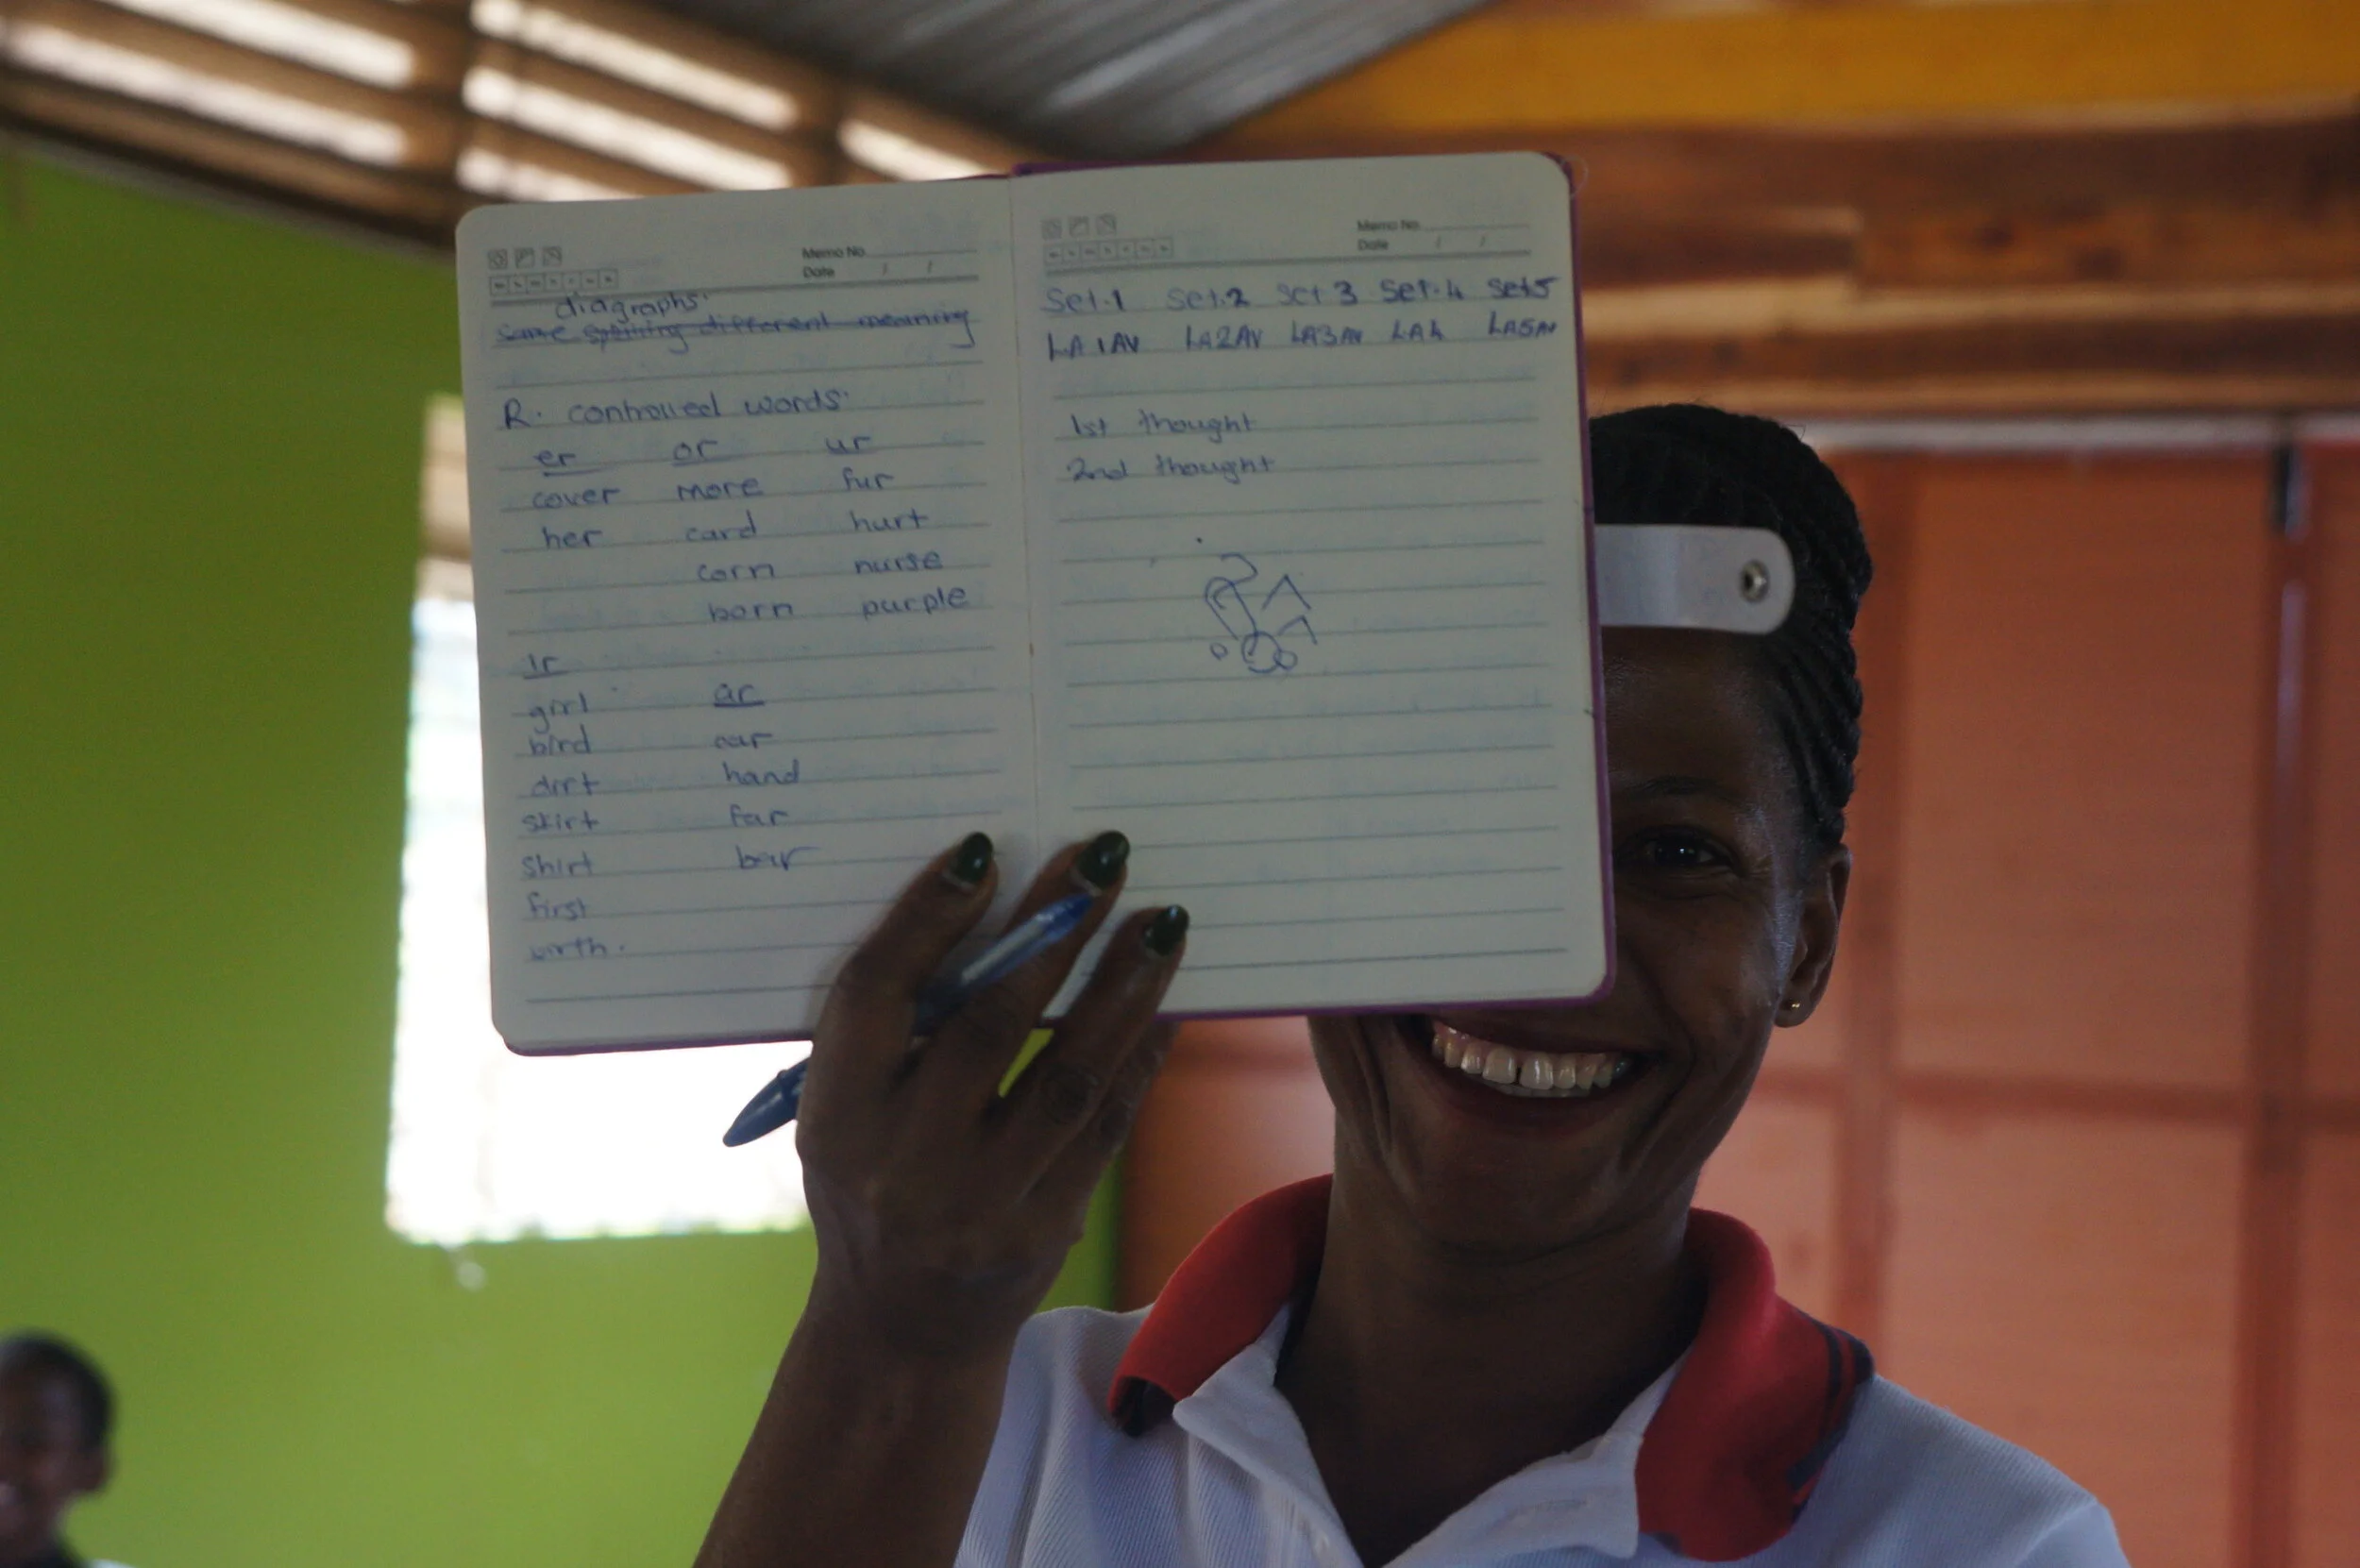 Memo No.
Date / /
diagraphs.
same spelling different meaning
R. controlled words.
er or ur
cover more fur
her card hurt
corn nurse
born purple
Ir
girl ar
bird car
dirt hand
skirt far
shirt bar
first
birth.
Memo No.
Date / /
Set.1 Set.2 Set 3 Set.4 Set5
LA1AV LA2AV LA3AV LA4 LA5AV
1st thought
2nd thought